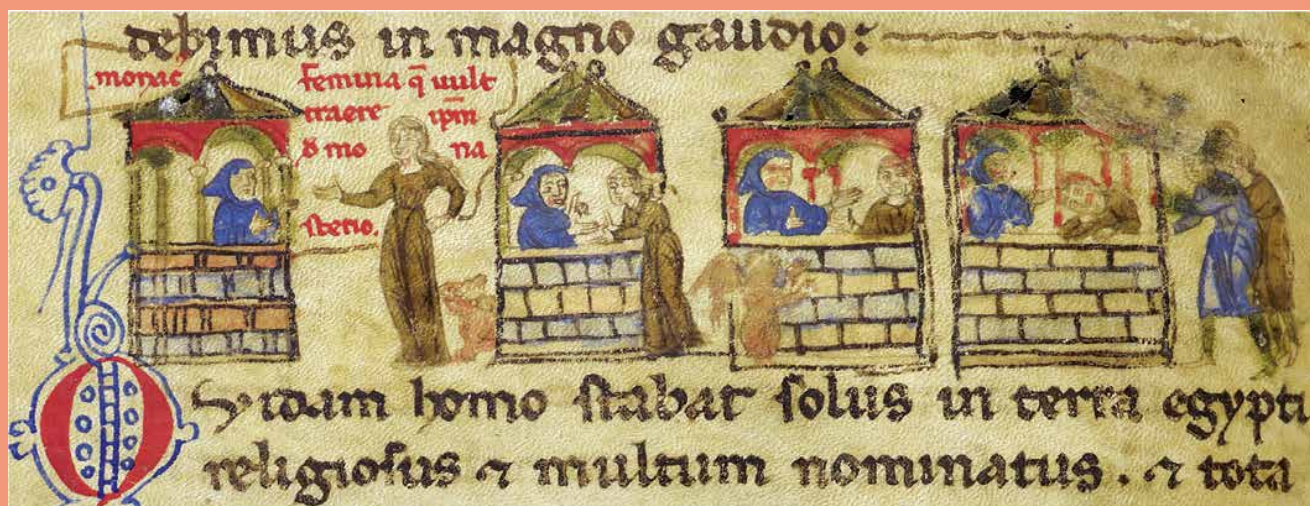 debimus in magno gaudio:
monac̓
femina q̄ uult
traere ip̄m
d̓ mo na
sterio.
Quidam homo stabat solus in terra egypti
religiosus ⁊ multum nominatus. ⁊ tota